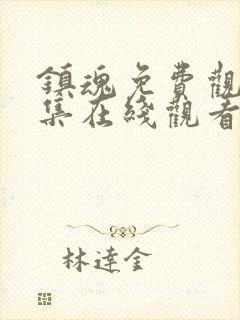 鎮魂免費觀
集在綫觀看
林達金